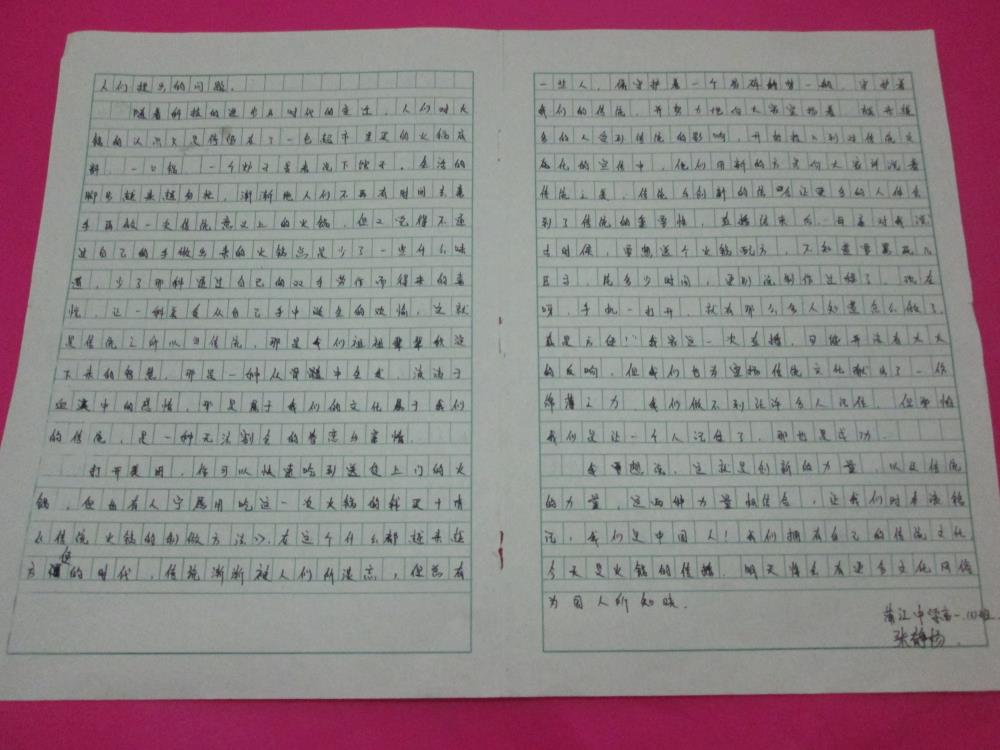 人们提出的问题。
随着科技的进步及时代的变迁，人们对火
锅的认识只是停留在了一包超市里买的火锅底
料，一口锅，一个炉子
脚步越来越匆忙，渐渐地人们不再有时间去亲
手再做一次传统意义上的火锅，但又觉得不通
过自己的手做出来的火锅总是少了一些什么味
道，少了那种通过自己的双手劳作而得来的喜
悦，让一种美是从自己手中诞生的欢愉，这就
是传统之所以曰传统，那是我们祖祖辈辈积淀
下来的智慧，那是一种从骨髓中生发，流淌于
血液中的恩情，那是属于我们的文化属于我们
的传统，是一种无法割舍的眷恋与
打开美团，你可以快速吃到送货上门的火
锅，但也有人宁愿用吃这一次火锅的钱买十
传统火锅的制做方法》，在这个什么都越来越
方便的时代，传统渐渐被人们所淡忘，但总有
一些人，像守护着一个易碎的梦一般，守护着
我们的传统，并努力地向大家宣扬着
多的人受到传统的影响，开始投入到对传统文
化的宣传中，他们用新的方式向大家讲说着
传统之美，传统与创新的结合让更多的人体会
到了传统的重要性，直播结束
去时候，要想送个火锅配方，不知道要
日子，花多少时间，更别说制作过程了。现在
呀，手机一打开，就有那么多人知道怎么做了，
真是方便！”我家这一次直播，可能并没有太大
的反响，但我们也为宣扬传统文化献出了一份
绵薄之力，我们做不到让许多人记住，但哪怕
我们是让一个人记住了，那也是成功。
我想说，这就是创新的力量，以及传统
的力量，这两种力量相结合，让我们时未流
记：我们是中国人！我们拥有自己的传统文化
今天是火锅的传播，明天将会有更多文化
为国人所知晓。
蒲江中学高一
张静杨